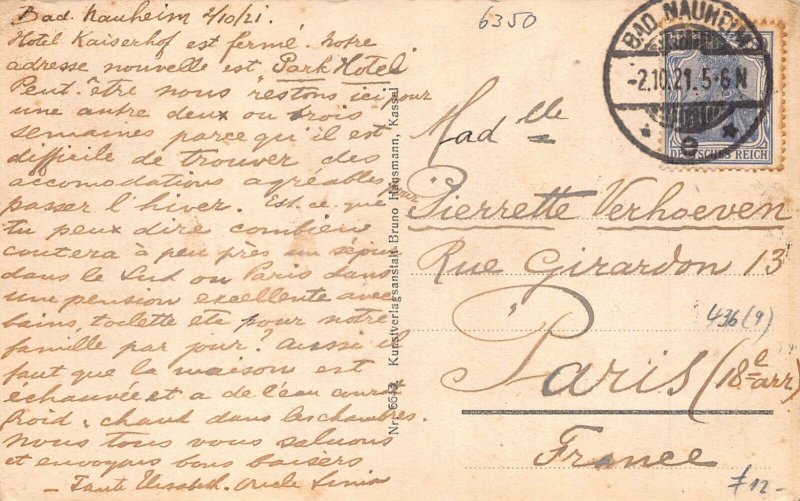 Bad Nauheim 2/10/21.
Hotel Kaiserhof est fermé. Notre
adresse nouvelle est Park Hotel
Peut-être nous restons ici pour
une autre deux ou trois
semaines parce qu'il est
difficile de trouver des
accomodations agréables pour
passer l'hiver. Est-ce que
tu peux dire combien
coutera à peu près un séjour
dans le Sud ou Paris dans
une pension excellente avec
bains, toilette etc pour notre
famille par jour? Aussi il
faut que la maison est
échauvée et a de l'eau cour
froid - chaud dans les chambres.
Nous tous vous saluons
et envoyons bons baisers
- Tante Elisabeth - Oncle
Nr. Kunstverlagsanstalt Bruno Hansmann, Kassel
6350
BAD NAUHEIM
-2.10.21. 5-6 N
DEUTSCHES REICH
Madelle
Pierrette Verhoeven
Rue Girardon 13
Paris (18e arr)
France
436(9)
12-